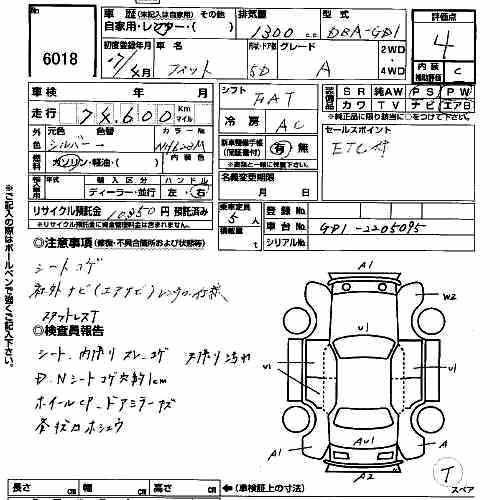 No.
6018
車歴 (未記入は自家用) その他
自家用・レンタ・( )
排気量
1300 c.c
型式
DBA-GD1
評価点
4
内装
補助評価
C
初度登録年月
17/4月
車名
フィット
型・ドア数
5D
グレード
A
2WD
・
4WD
車検 年 月
走行 78,600 Km マイル
シフト
FAT
装備品
SR 純AW PS PW
カワ TV ナビ エアB
※純正品に限り該当に○をつけて下さい。
外色
元色 色替 カラーNo
シルバー→ NH623M
冷房 AC
セールスポイント
ETC付
燃料
ガソリン・軽油・( )
内装色
新車整備手帳
(保証書付) 有 無
※車両と一緒に提示下さい。
輸入車用
年式 輸入区分 ハンドル
ディーラー・並行 左・右
名義変更期限
月 日
リサイクル預託金 10850円 預託済み
※リサイクル預託金に資金管理料金は含まれません
乗車定員 5人
積載量 t
登録No.
車台No. GD1-2205095
シリアルNo.
※ご記入の際はボールペンで強くご記入下さい。
◎注意事項 (修復・不具合箇所および状態等)
シートコゲ
社外ナビ(エアナビ)
スタットレスT
◎検査員報告
シート、内張り スレ、コゲ 天張り汚れ
D.Nシートコゲ穴約1cm
ホイールCP.ドアミラーキズ
A1
W2
U1
U1
U1
AU1
A1
A
A2
T
スペア
長さ cm 幅 cm 高さ cm (車検証上の寸法)